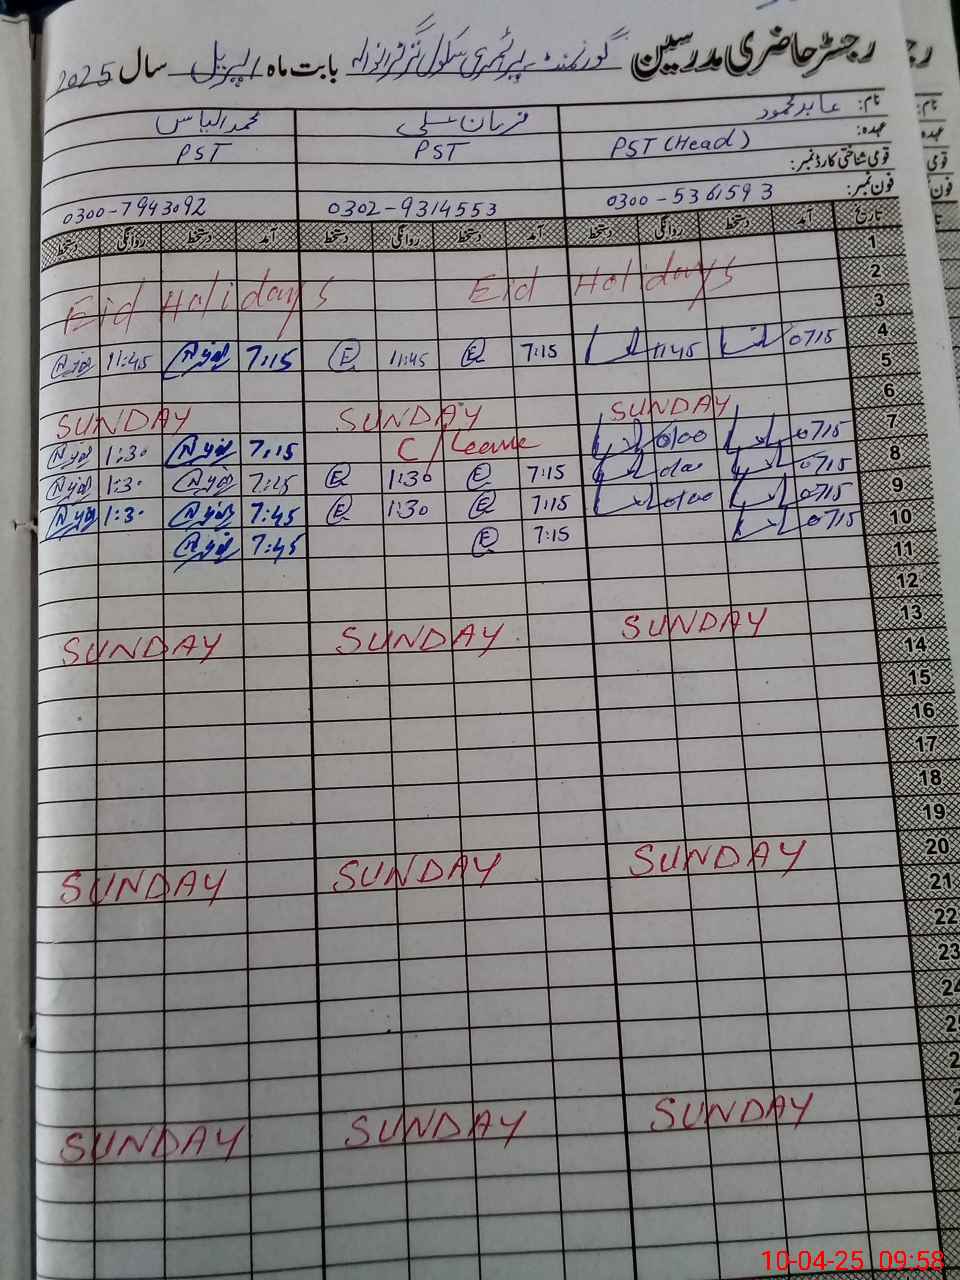 رجسٹر حاضری مدرسین گورنمنٹ پرائمری سکول بابت ماہ اپریل سال 2025
نام: عابد محمود فرمان علی محمد الیاس
عہدہ: PST (Head) PST PST
قومی شناختی کارڈ نمبر:
فون نمبر: 0300-5361593 0302-9314553 0300-7943092
تاریخ آمد دستخط روانگی دستخط آمد دستخط روانگی دستخط آمد دستخط روانگی دستخط
1
2 Eid Holidays Eid Holidays
3
4
5 0715 11:45 7:15 11:45 7:15 11:45
6 SUNDAY SUNDAY SUNDAY
7 0715 0100 C/Leave 7:15 1:30
8 0715 0100 7:15 1:30 7:15 1:30
9 0715 0100 7:15 1:30 7:45 1:30
10 0715 7:15 7:45
11
12
13 SUNDAY SUNDAY SUNDAY
14
15
16
17
18
19
20 SUNDAY SUNDAY SUNDAY
21
22
23
SUNDAY SUNDAY SUNDAY
10-04-25 09:58